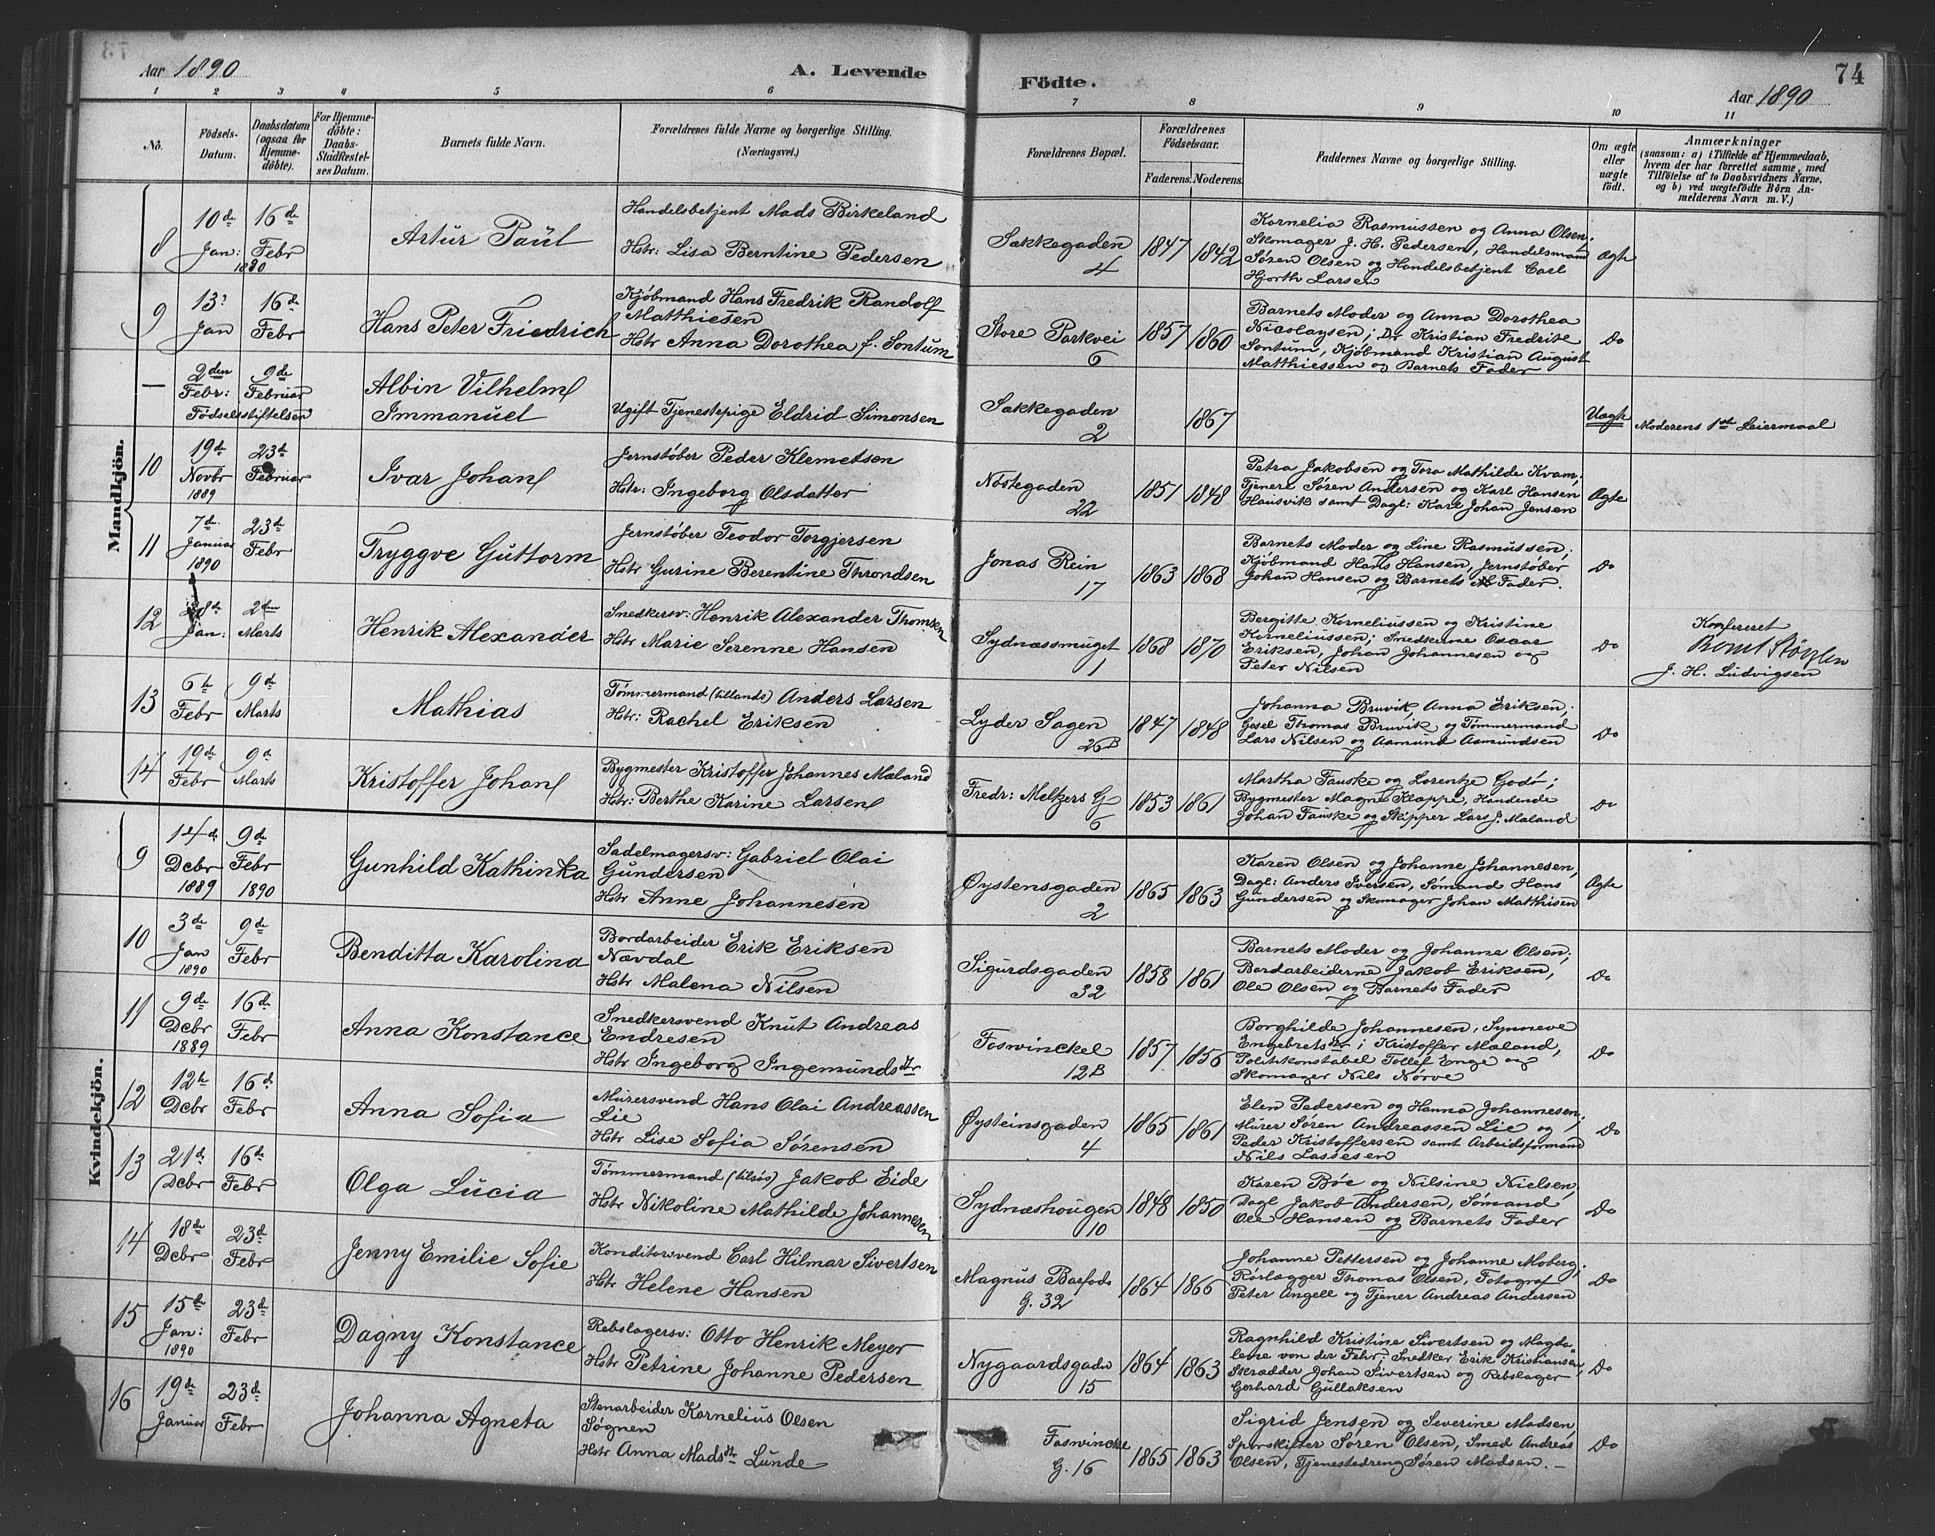 Aar 1890
A. Levende
Födte.
Aar 1890
74
1 2 3 4 5 6 7 8 9 10 11
No.
Födsels-
Datum.
Daabsdatum
(ogsaa for
Hjemme-
döbte).
For Hjemme-
döbte:
Daabs-
Stadfæstel-
ses Datum.
Barnets fulde Navn.
Forældrenes fulde Navne og borgerlige Stilling.
(Næringsvei.)
Forældrenes Bopæl.
Forældrenes
Födselsaar.
Faderens. Moderens.
Faddernes Navne og borgerlige Stilling.
Om ægte
eller
uægte
födt.
Anmærkninger
(saasom: a) i Tilfælde af Hjemmedaab,
hvem der har forrettet samme, med
Tilföielse af to Daabsvidners Navne,
og b) ved uægtefödte Börn An-
melderens Navn m. V.)
Mandkjön.
8
10de
Jan:
1890
16de
Febr
Artur Paul
Handelsbetjent Mads Birkeland
Hstr: Lisa Berntine Pedersen
Sækkegaden
4
1847 1842
Kornelia Rasmussen og Anna Olsen;
Skomager J. H. Pedersen, Handelsmand
Søren Olsen og Handelsbetjent Carl
Hjorth Larsen
Ægte
9
13
Jan
16de
Febr
Hans Peter Friedrich
Kjøbmand Hans Fredrik Randolf
Matthiesen
Hstr Anna Dorothea f. Sontum
Store Parkvei
6
1857 1860
Barnets Moder og Anna Dorothea
Nicolaysen; Dr Kristian Fredrik
Sontum, Kjøbmand Kristian August
Matthiessen og Barnets Fader
Do
—
2den
Febr:
Fødselsstiftelsen
9de
Februar
Albin Vilhelm
Immanuel
Ugift Tjenestepige Eldrid Simonsen
Sækkegaden
2
1867
Uægte
Moderens 1ste Leiermaal
10
19de
Novbr
1889
23de
Februar
Ivar Johan
Jernstøber Peder Klemetsen
Hstr: Ingeborg Olsdatter
Nøstegaden
22
1851 1848
Petra Jakobsen og Tora Mathilde Kvam;
Tjenere Søren Andersen og Karl Hansen
Hausvik samt Dagl: Karl Johan Jensen
Ægte
11
7de
Januar
1890
23de
Febr
Tryggve Guttorm
Jernstøber Teodor Torgjersen
Hstr Gurine Berentine Throndsen
Jonas Rein
17
1863 1868
Barnets Moder og Line Rasmussen;
Kjøbmand Hans Hansen, Jernstøber
Johan Hansen og Barnets Fader.
Do
12
28de
Jan:
2den
Marts
Henrik Alexander
Snedkersv: Henrik Alexander Thomsen
Hstr Marie Serenne Hansen
Sydnæssmuget
1
1868 1870
Bergitte Korneliussen og Kristine
Korneliussen; Snedkerne Oscar
Eriksen, Johan Johannesen og
Peter Nilsen
Do
Konfereret
J. H. Ludvigsen
13
6te
Febr
9de
Marts
Mathias
Tømmermand (tillands) Anders Larsen
Hstr: Rachel Eriksen
Lyder Sagen
26B
1847 1848
Johanna Bruvik Anna Eriksen;
Gesel Thomas Bruvik og Tømmermand
Lars Nilsen og Aamund Aamundsen
Do
14
19de
Febr
9de
Marts
Kristoffer Johan
Bygmester Kristoffer Johannes Mæland
Hstr: Berthe Karine Larsen
Fredr: Meltzers G
6
1853 1861
Martha Fauske og Lorentze Godø;
Bygmester Magne Kloppe, Handlende
Johan Fauske og Skipper Lars J. Mæland
Do
Kvindekjön.
9
14de
Dcbr
1889
9de
Febr
1890
Gunhild Kathinka
Sadelmagersv: Gabriel Olai
Gundersen
Hstr Anne Johannesen
Øystensgaden
2
1865 1863
Karen Olsen og Johanne Johannesen,
Dagl: Anders Iversen, Sømand Hans
Gundersen og Skomager Johan Matthisen
Ægte
10
3de
Jan
1890
9de
Febr
Benditta Karolina
Bordarbeider Erik Eriksen
Nævdal
Hstr Malena Nilsen
Sigurdsgaden
32
1858 1861
Barnets Moder og Johanne Olsen;
Bordarbeiderne Jakob Eriksen,
Ole Olsen og Barnets Fader
Do
11
9de
Dcbr
1889
16de
Febr
Anna Konstance
Snedkersvend Knut Andreas
Endresen
Hstr Ingeborg Ingemundsdtr
Foswinckel
12B
1857 1856
Borghilde Johannesen, Synneve
Engebretsdtr; Kristoffer Mæland,
Politikonstabel Tollef Enge og
Skomager Nils Nørve
Do
12
12te
Dcbr
16de
Febr
Anna Sofia
Murersvend Hans Olai Andreassen
Lie
Hstr Lise Sofia Sørensen
Øysteinsgaden
4
1865 1861
Elen Pedersen og Hanna Johannesen;
Murer Søren Andreassen Lie og
Peder Kristoffersen samt Arbeidsformand
Nils Lassesen
Do
13
21de
Dcbr
16de
Febr
Olga Lucia
Tømmermand (tilsøs) Jakob Eide
Hstr Nikoline Mathilde Johannesen
Sydnæshougen
10
1848 1850
Karen Bøe og Nilsine Nielsen;
Dagl Jakob Andersen, Sømand
Ole Hansen og Barnets Fader
Do
14
18de
Dcbr
23de
Febr
Jenny Emilie Sofie
Konditorsvend Carl Hilmar Sivertsen
Hstr Helene Hansen
Magnus Barfods
G. 32
1864 1866
Johanne Pettersen og Johanne Moberg;
Rørlægger Thomas Olsen, Fotograf
Peter Angell og Tjener Andreas Andersen
Do
15
15de
Jan:
1890
23de
Febr
Dagny Konstance
Rebslagersv: Otto Henrik Meyer
Hstr Petrine Johanne Pedersen
Nygaardsgaden
15
1864 1863
Ragnhild Kristine Sivertsen og Magda-
lene von der Fehr; Snedker Erik Kristiansen,
Skrædder Johan Sivertsen og Rebslager
Gerhard Gullaksen
Do
16
19de
Januar
23de
Febr
Johanna Agneta
Stenarbeider Kornelius Olsen
Søgnen
Hstr Anna Madsdtr Lunde
Foswinckel
G. 16
1865 1863
Sigrid Jensen og Severine Madsen,
Sporskifter Søren Olsen, Smed Andreas
Olsen, Tjenestedreng Søren Madsen. —
Do